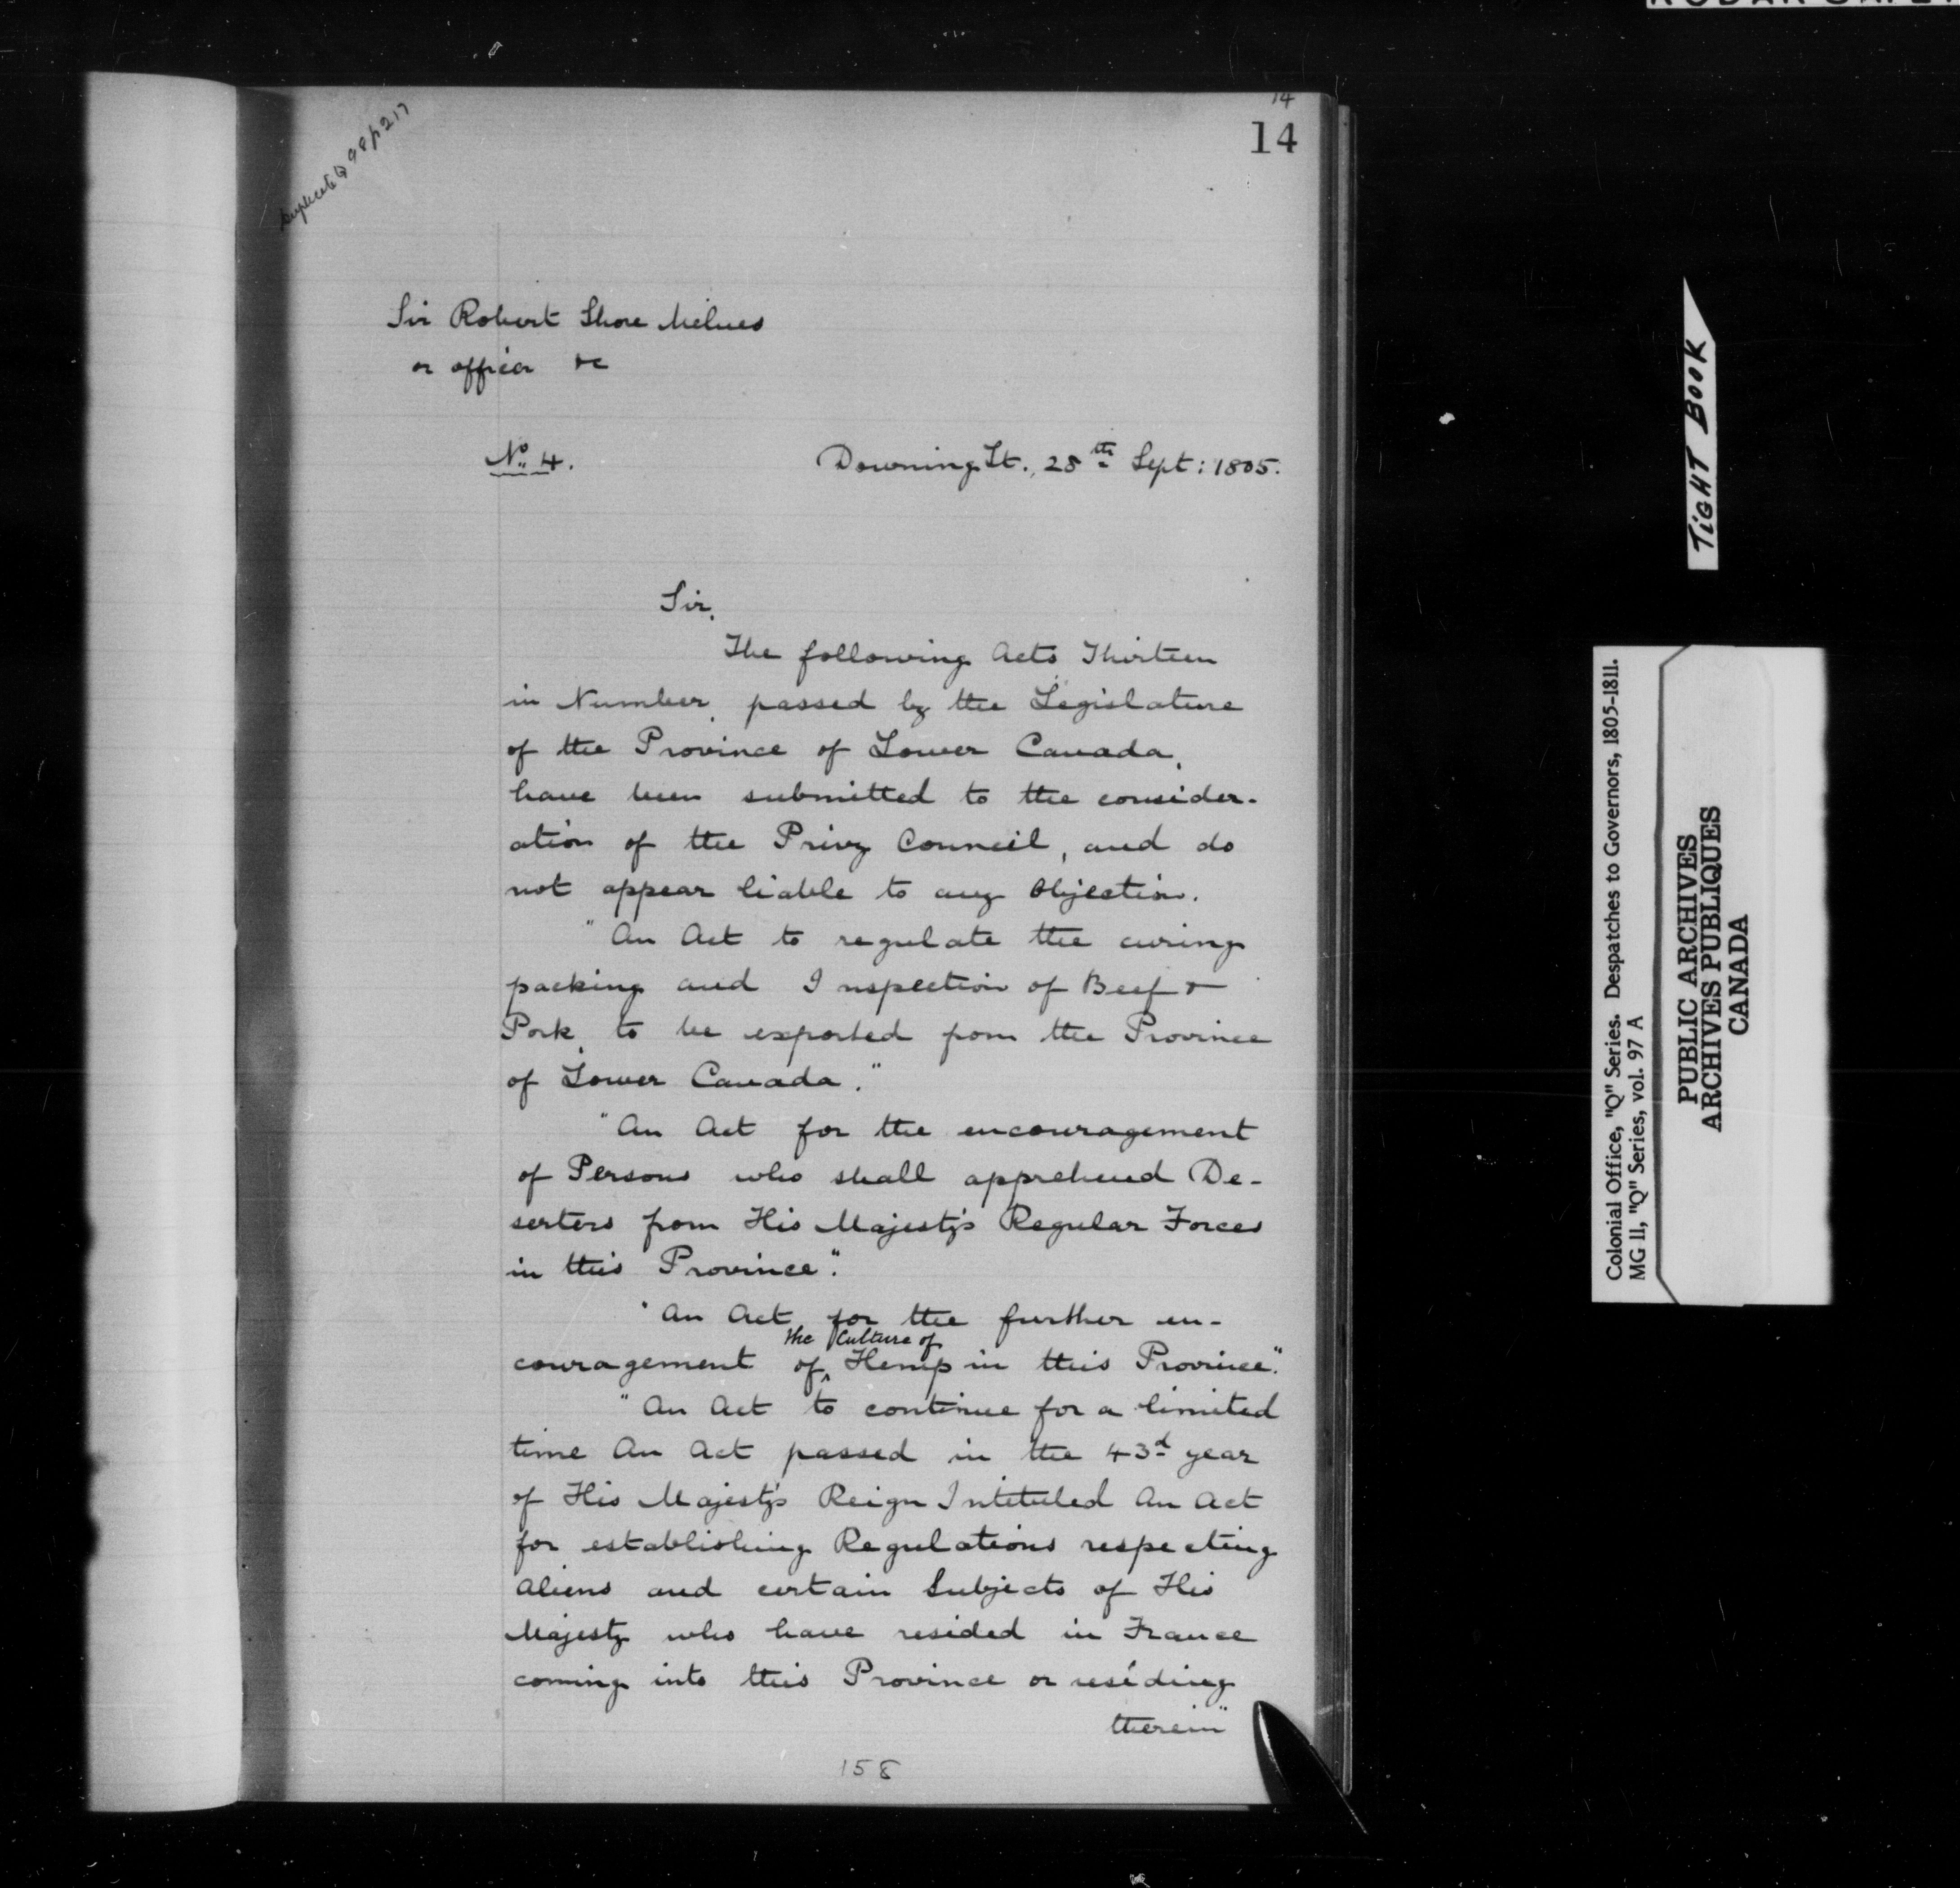 14
14
duplicate Q 98 p 217
Sir Robert Shore Milnes
or officer &c
No. 4.
Downing St., 28th Sept: 1805.
Sir,
The following Acts Thirteen
in Number, passed by the Legislature
of the Province of Lower Canada,
have been submitted to the consider-
ation of the Privy Council, and do
not appear liable to any Objection.
"An Act to regulate the curing
packing and Inspection of Beef &
Pork, to be exported from the Province
of Lower Canada."
"An Act for the encouragement
of Persons who shall apprehend De-
serters from His Majesty's Regular Forces
in this Province".
"An Act for the further en-
couragement of the Culture of Hemp in this Province".
"An Act to continue for a limited
time An Act passed in the 43d year
of His Majesty's Reign Intituled An Act
for establishing Regulations respecting
Aliens and certain Subjects of His
Majesty who have resided in France
coming into this Province or residing
therein"
158
TIGHT BOOK
Colonial Office, "Q" Series. Despatches to Governors, 1805-1811.
MG 11, "Q" Series, vol. 97 A
PUBLIC ARCHIVES
ARCHIVES PUBLIQUES
CANADA